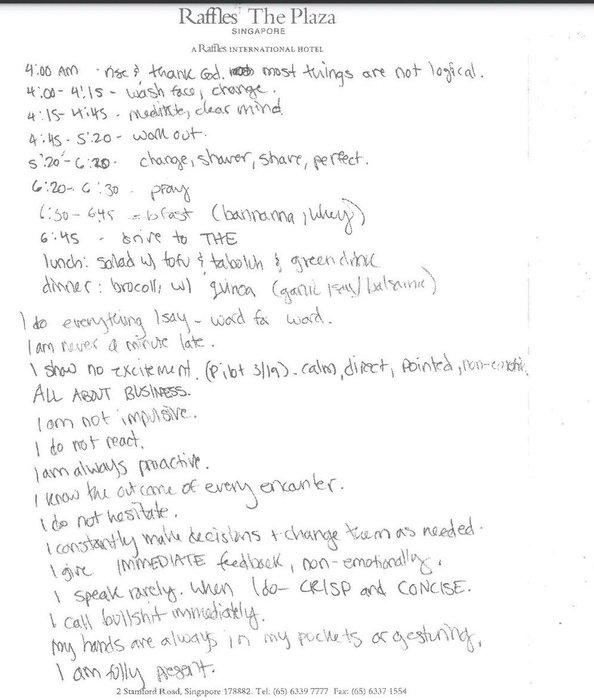 Raffles The Plaza
SINGAPORE
A Raffles INTERNATIONAL HOTEL
4:00 AM - rise & thank God. most things are not logical.
4:00 - 4:15 - wash face, change.
4:15 - 4:45 - meditate, clear mind.
4:45 - 5:20 - work out.
5:20 - 6:20 - change, shower, shave, perfect.
6:20 - 6:30 - pray
6:30 - 645 - bfast (bannanna, whey)
6:45 - drive to THE
lunch: salad w/ tofu & tabolih & green drink
dinner: brocolli w/ quinoa (garlic /soy/balsamic)
I do everything I say - word for word.
I am never a minute late.
I show no excitement. (Pilot 3/19). calm, direct, pointed, non-emotional.
ALL ABOUT BUSINESS.
I am not impulsive.
I do not react.
I am always proactive.
I know the outcome of every encounter.
I do not hesitate.
I constantly make decisions + change them as needed.
I give IMMEDIATE feedback, non-emotionally.
I speak rarely. When I do - CRISP and CONCISE.
I call bullshit immediately.
My hands are always in my pockets or gesturing.
I am fully present.
2 Stamford Road, Singapore 178882. Tel: (65) 6339 7777 Fax: (65) 6337 1554